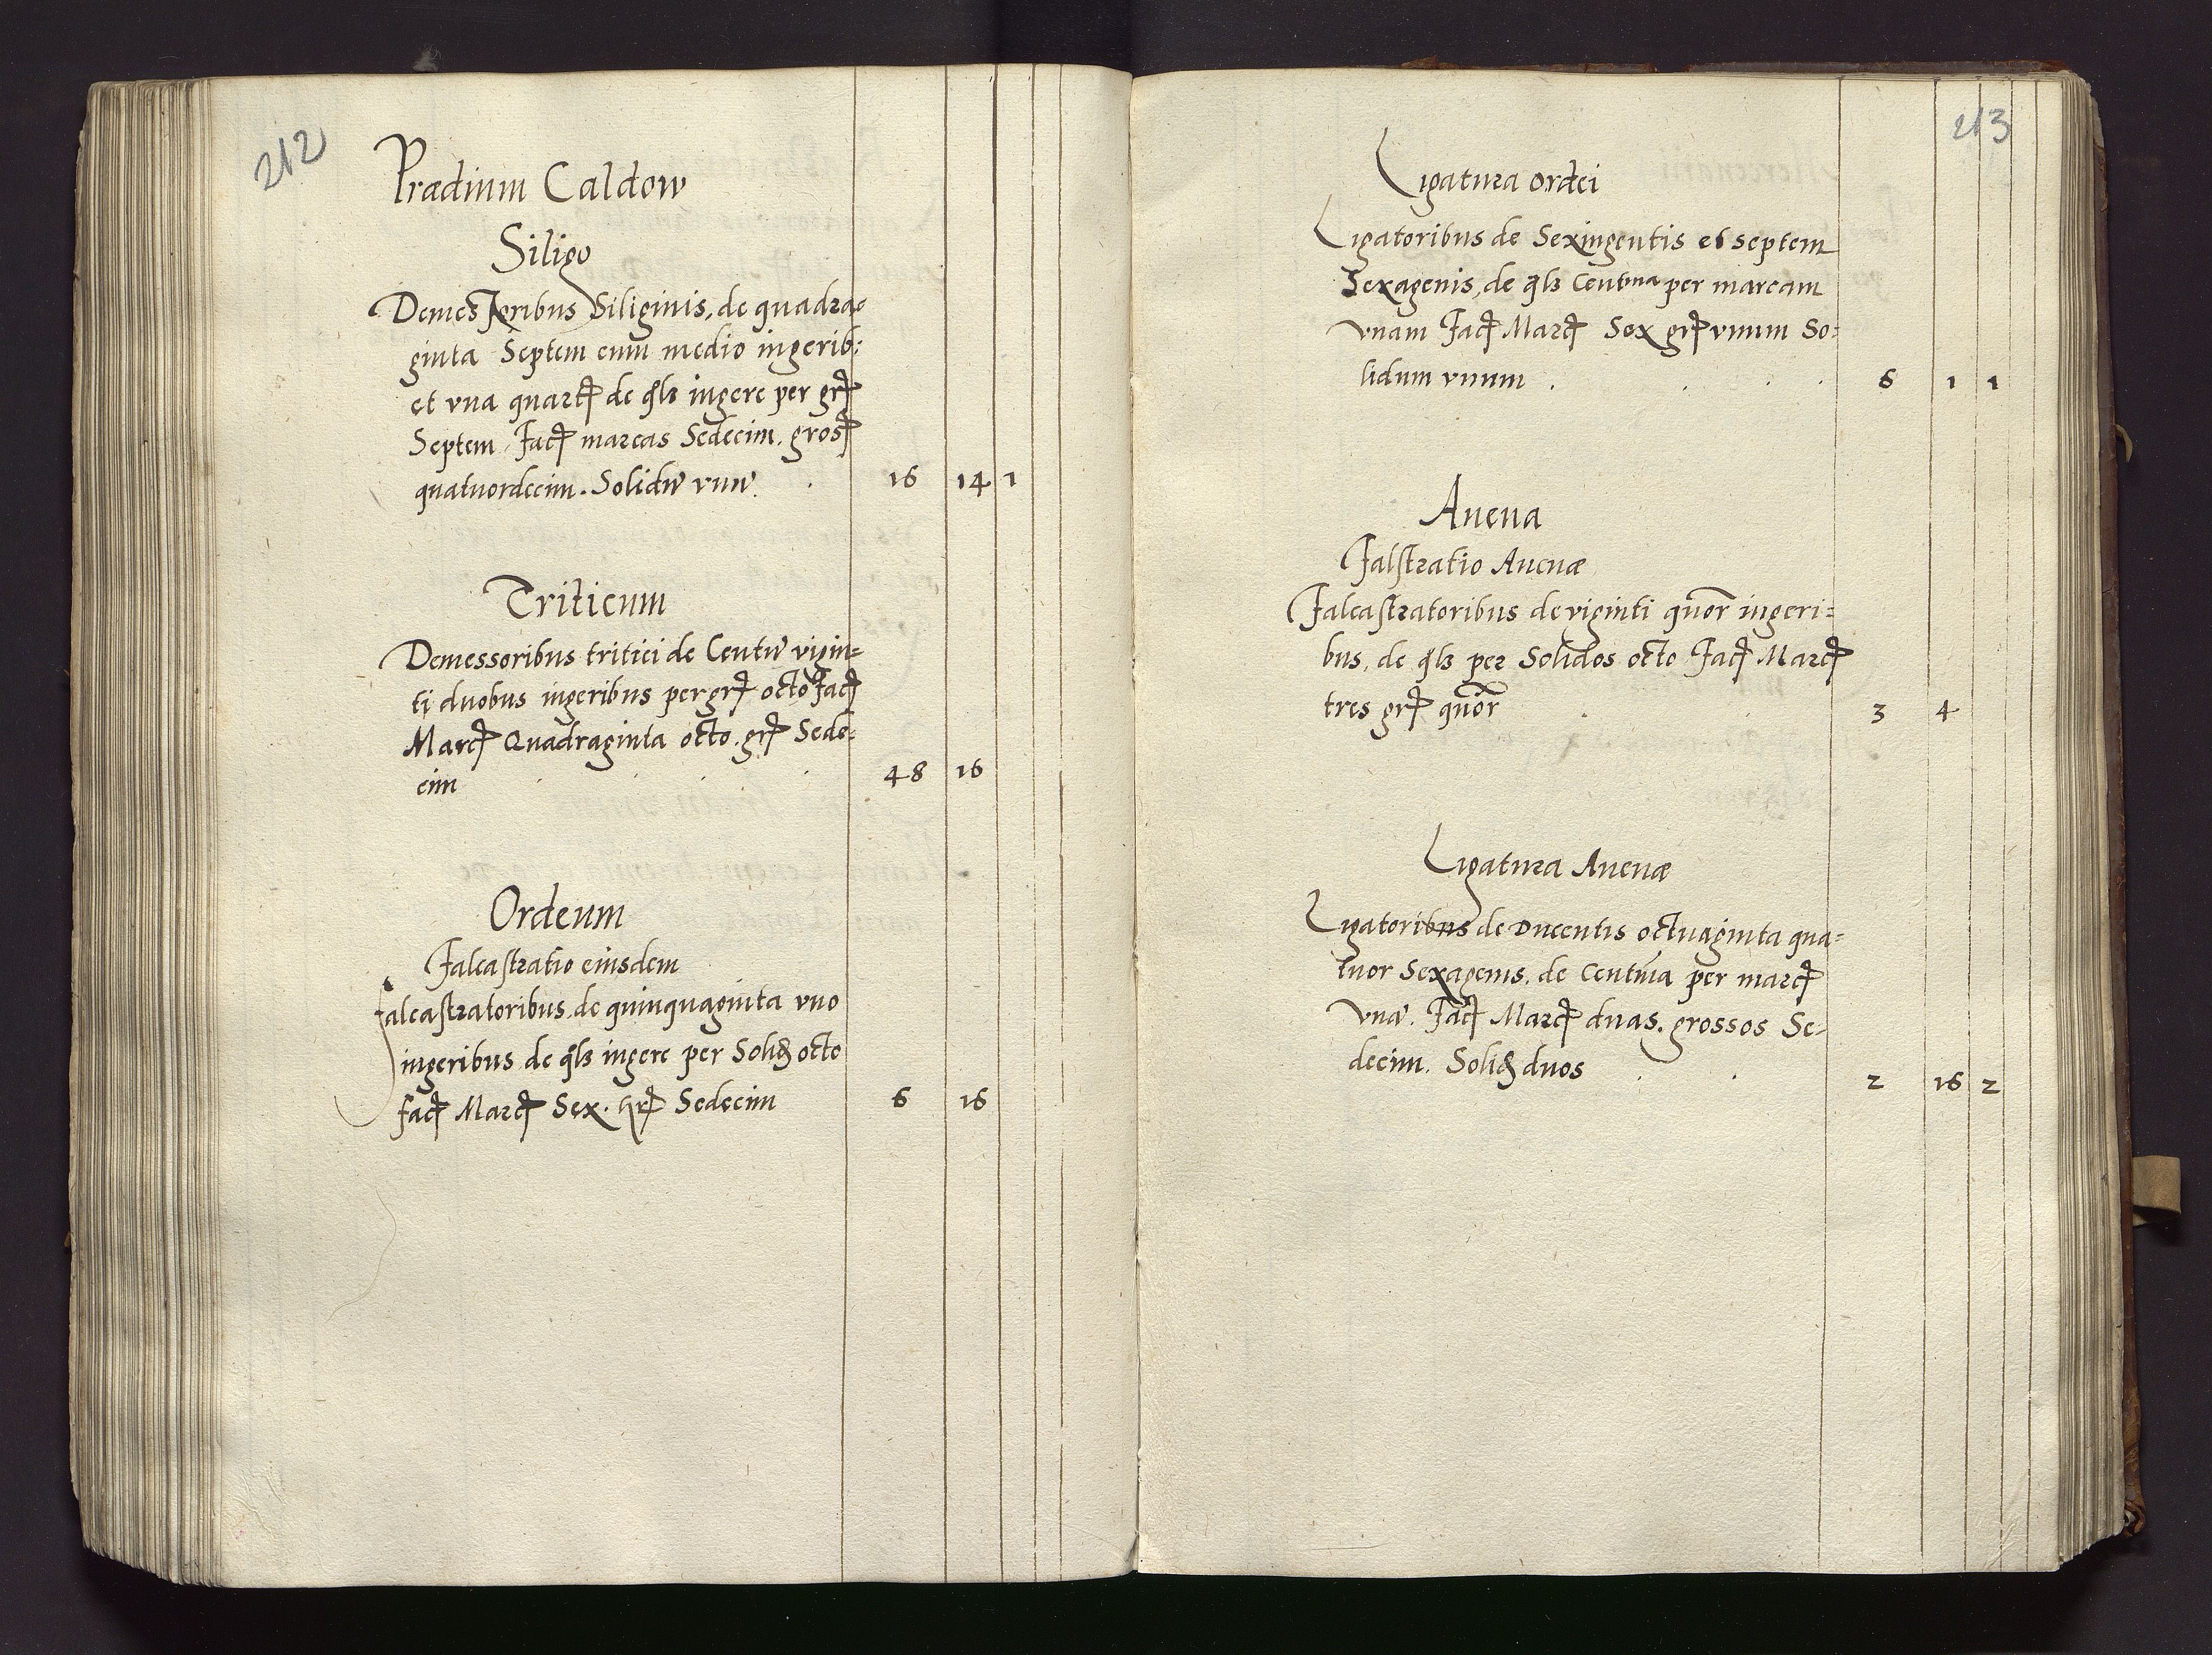 212
Prædium Caldow
Siligo
Demessoribus Siliginis, de quadra=
ginta Septem cum medio iugerib:
et vna quart de qlb iugere per gr
Septem. Fact marcas Sedecim. gros
quatuordecim. Solidū vnū. 16 14 1
Triticum
Demessoribus tritici de Centū vigin=
ti duobus iugeribus per gr octo Fact
Marc Quadraginta octo. gr Sede=
cim 48 16
Ordeum
Falcastratio eiusdem
Falcastratoribus de quinquaginta vno
iugeribus de qlb iugere per Solid octo
fact Marc Sex. gr Sedecim 6 16
213
Ligatura ordei
Ligatoribus de Sexingentis et septem
Sexagenis, de qlb Centuna per marcam
vnam Fact Marc Sex gr vnum So=
lidum vnum 6 1 1
Auena
Falstratio Auenæ
Falcastratoribus de viginti quor iugeri=
bus, de qlb per Solidos octo Fact Marc
tres gr quor 3 4
Ligatura Auenæ
Ligatoribus de Ducentis octuaginta qua=
tuor Sexagenis. de Centuna per marc
vnā. Fact Marc duas. grossos Se=
decim. Solid duos 2 16 2